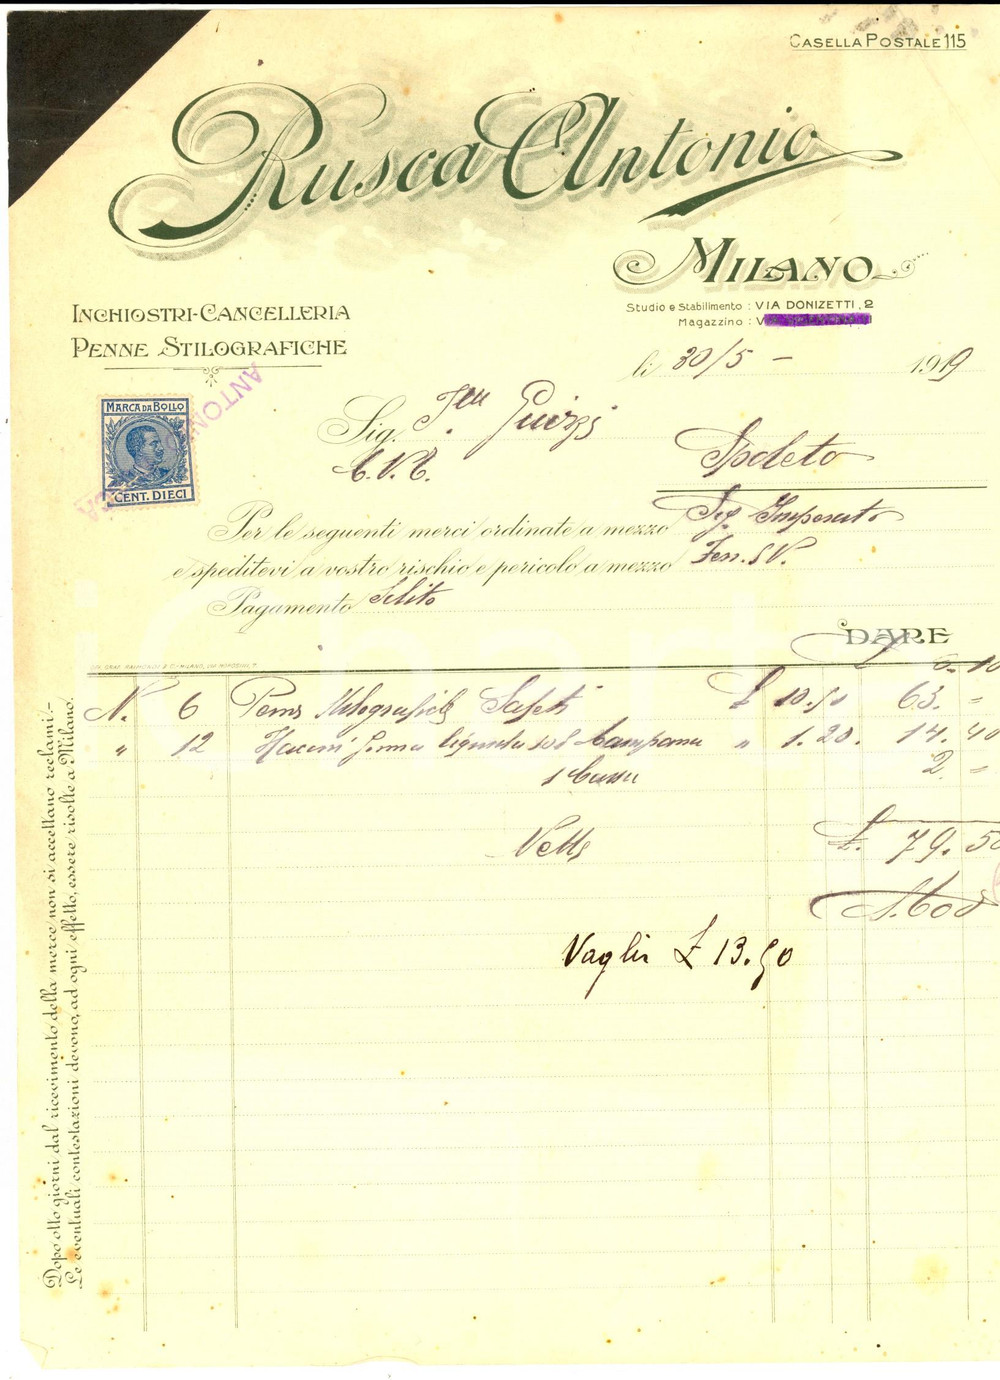 CASELLA POSTALE 115
Rusca Antonio
MILANO
Studio e Stabilimento : VIA DONIZETTI, 2
Magazzino : V
INCHIOSTRI-CANCELLERIA
PENNE STILOGRAFICHE
li 30/5 - 1919
MARCA DA BOLLO
CENT. DIECI
ANTON
Sig. Guizzi
Spoleto
Per le seguenti merci ordinate a mezzo Sig. Imperato
e speditevi a vostro rischio e pericolo a mezzo Ferr. S V.
Pagamento Solito
DARE
0. 10
N. 6 Penne Stilografiche Safety £ 10.50 63. =
" 12 Flaconi Gomma liquida Campana " 1.20. 14. 40
1 Cassa 2. =
Netto £. 79. 50
Vaglia £ 13.50
Dopo otto giorni dal ricevimento della merce non si accettano reclami.-
Le eventuali contestazioni devono, ad ogni effetto, essere risolte a Milano.